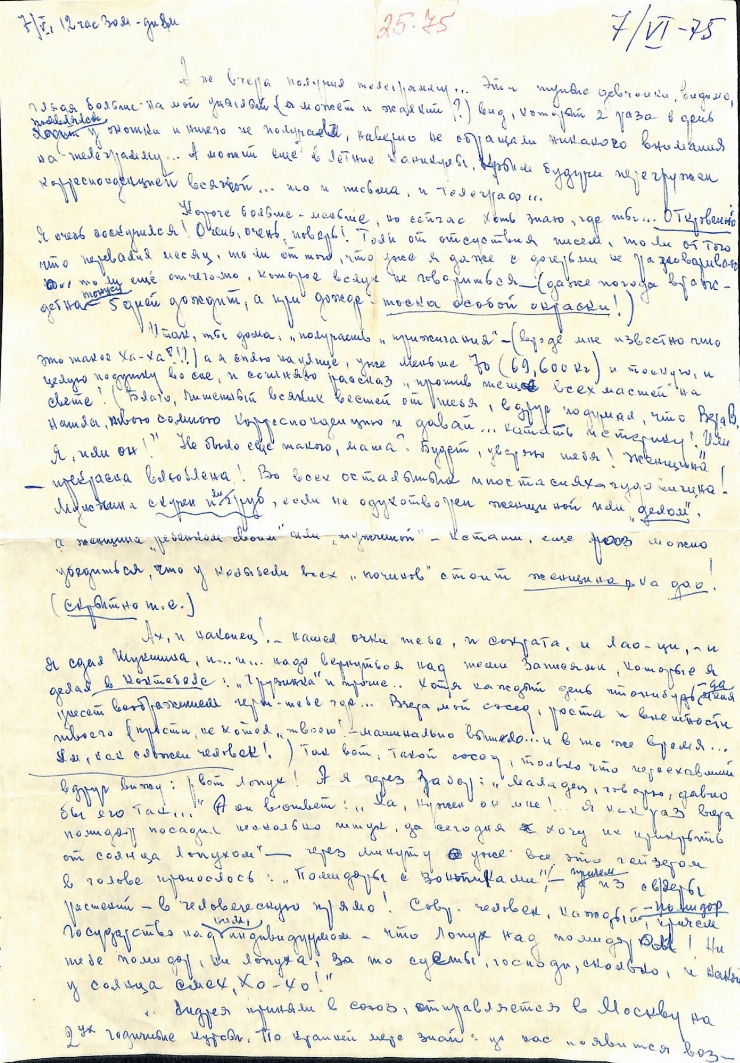 7/VI, 12 час 30м - дня
25-75
7/VI-75
А не вчера получил телеграмму... Эти глупые девчонки, видимо,
глядя больше на мой унылый (а может и жалкий?) вид, который 2 раза в день
появлялся у окошка и ничего не получает, наверно не обращали никакого внимания
на телеграмму... А может ещё в летние каникулы, Крым будучи перегружен
корреспонденцией всякой... то и письма, и телеграф...
Короче больше-меньше, но сейчас хоть знаю, где ты... Откровенно
я очень соскучился! Очень, очень, поверь! То ли от отсутствия писем, то ли от того
что перевалил месяц, то ли от того, что уже я даже с дочерьми не разговариваю
то ли ещё отчего-то, которое вслух не говориться - (даже погода
5 дней дождит, а при дожде тоска особой окраски!)
Итак, ты дома, "получаешь "прижигания" - (вроде мне известно что
это такое Ха-ха!!!) а я сплю на улице, уже меньше 70 (69,600 кг) и тоскую, и
целую подушку во сне, и сочиняю рассказ "против всех мастей" на
свете! (Благо, лишенный всяких вестей от тебя, вдруг подумал, что Вера В.
нашла твою со мною корреспонденцию и давай... катать истерику! "Или
я, или он!" Не было ещё такого, маша? Будет, уверяю тебя! Женщина
прекрасна влюблена! Во всех остальных ипостасях - чудовищна!
Мужчина скучен или груб, если не одухотворен женщиной или "делом".
а женщина "ребёнком своим" или "мужчиной" - кстати, еще раз можно
убедиться, что у колыбели всех "починов" стоит женщина, на дао!
(скрытно т.е.)
Ах, и наконец! - нашел очки тебе, и Сократа, и Лао-ци, - и
я сдал Шукшина, и... и... надо вернуться над теми записями, которые я
делал в Коктебеле: "Грузинка" и прочие... Хотя каждый день что нибудь да меня
унесет воображением черт-те где... Вчера мой сосед, роста и внешности
твоего (прости, не хотел "твоего" - машинально вышло... и в то же время...
как сложен человек!) Так вот, такой сосед, только что переехавший
вдруг вижу: рвет лопух! А я через забор: "Маладец, говорю, давно
бы его так..." А он в ответ: "Да, нужен он мне!... Я как раз вчера
помидор посадил несколько штук, да сегодня хочу их прикрыть
от солнца лопухом" - через минуту уже все это гейзером
в голове пронослось: "Помидоры с зонтиками" - причем из сферы
растений - в человеческую прямо! Совр. человек, каждый - помидор, причем
государство над ним, индивидуумом - что лопух над помидором! Ни
тебе помидор, ни лопуха, за то суеты, господи, сколько, и какой
у солнца смех, Хо-хо!"
.. Андрея приняли в союз, отправляется в Москву на
2ух годичные курсы. По крайней мере знай: у нас появится воз-